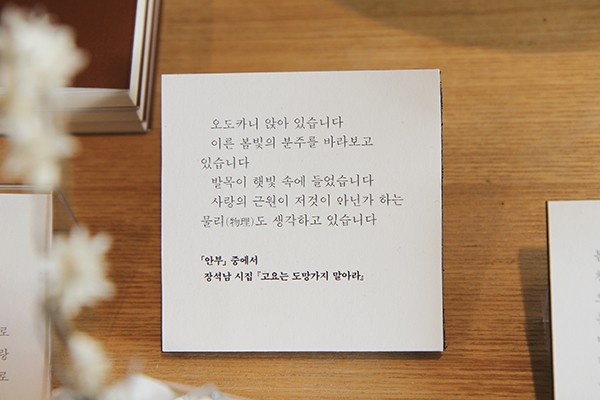 오도카니 앉아 있습니다
이른 봄빛의 분주를 바라보고
있습니다
발목이 햇빛 속에 들었습니다
사랑의 근원이 저것이 아닌가 하는
물리(物理)도 생각하고 있습니다
「안부」 중에서
장석남 시집 『고요는 도망가지 말아라』
로
랑
로